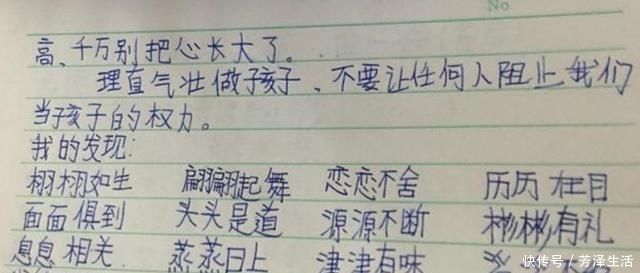 No
高,千万别把心长大了。
理直气壮做孩子,不要让任何人阻止我们
当孩子的权力。
我的发现:
栩栩如生 翩翩起舞 恋恋不舍 历历在目
面面俱到 头头是道 源源不断 彬彬有礼
息息相关 蒸蒸日上 津津有味
快传号/芳泽生活